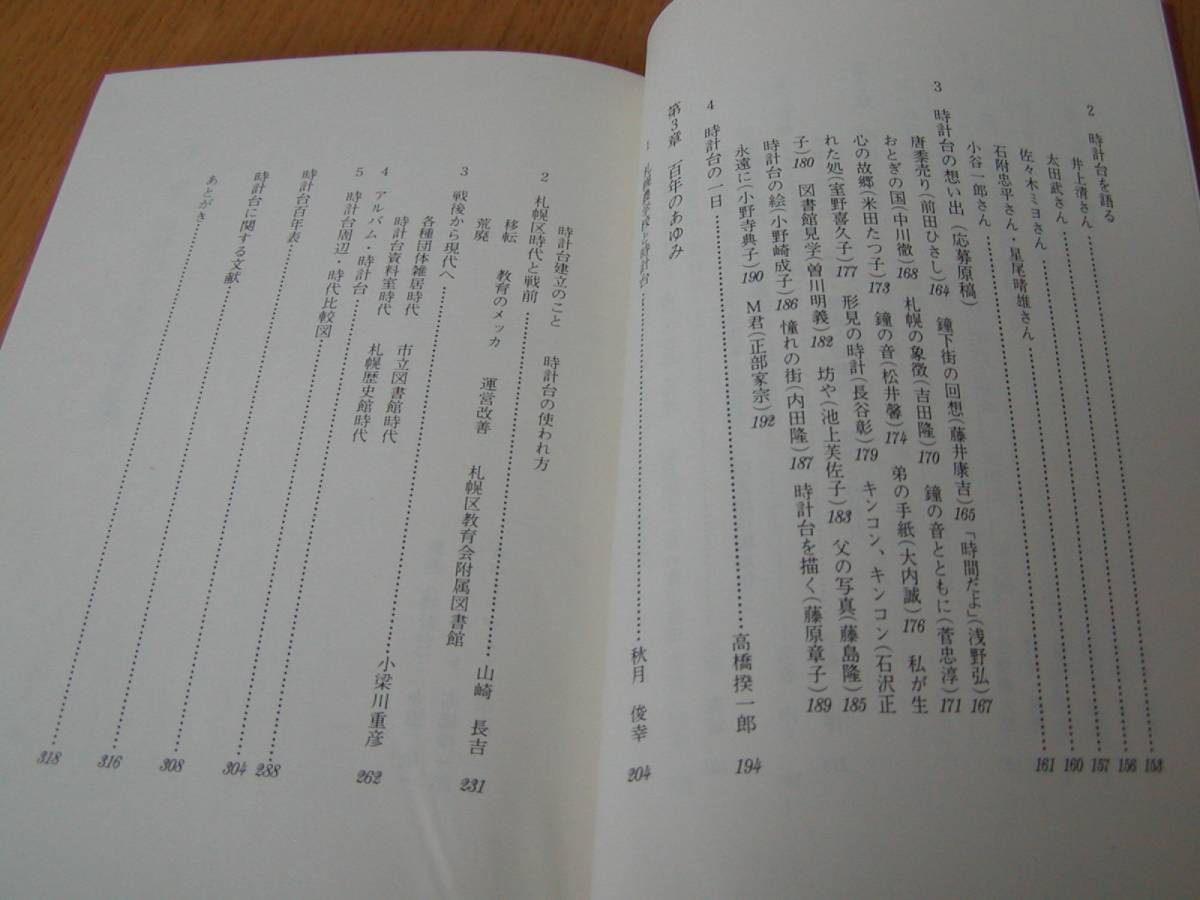 2 時計台を語る
井上清さん……153
太田武さん……156
佐々木ミヨさん……157
石附忠平さん・星尾晴雄さん……160
小谷一郎さん……161
3 時計台の想い出(応募原稿) 鐘下街の回想(藤井康吉)165 「時間だよ」(浅野弘)167
唐黍売り(前田ひさし)164 鐘の音とともに(菅忠淳)171
おとぎの国(中川徹)168 札幌の象徴(吉田隆)170
心の故郷(米田たつ子)173 鐘の音(松井馨)174 弟の手紙(大内誠)176 私が生
れた処(室野喜久子)177 形見の時計(長谷彰)179 キンコン、キンコン(石沢正
子)180 図書館見学(曽川明義)182 坊や(池上芙佐子)183 父の写真(藤島隆)185
時計台の絵(小野崎成子)186 憧れの街(内田隆)187 時計台を描く(藤原章子)189
永遠に(小野寺典子)190 M君(正部家宗)192
4 時計台の一日……高橋揆一郎 194
第3章 百年のあゆみ
1 札幌農学校と時計台……秋月俊幸 204
時計台建立のこと 時計台の使われ方
2 札幌区時代と戦前……山崎長吉 231
移転 教育のメッカ 運営改善 札幌区教育会附属図書館
荒廃
3 戦後から現代へ……小梁川重彦 262
各種団体雑居時代 市立図書館時代
時計台資料室時代 札幌歴史館時代
4 アルバム・時計台……288
5 時計台周辺・時代比較図……304
時計台百年表……308
時計台に関する文献……316
あとがき……318